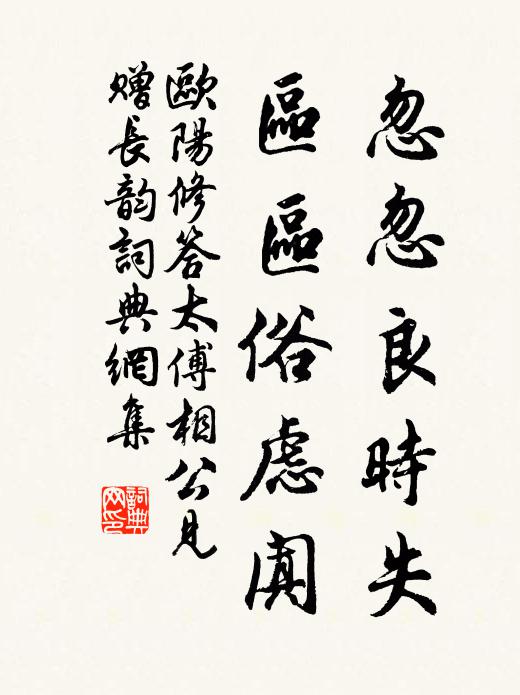 忽忽良時失
區區俗慮闐
歐陽修答太傅相公見
贈長韵詞典網集
詞典
网印